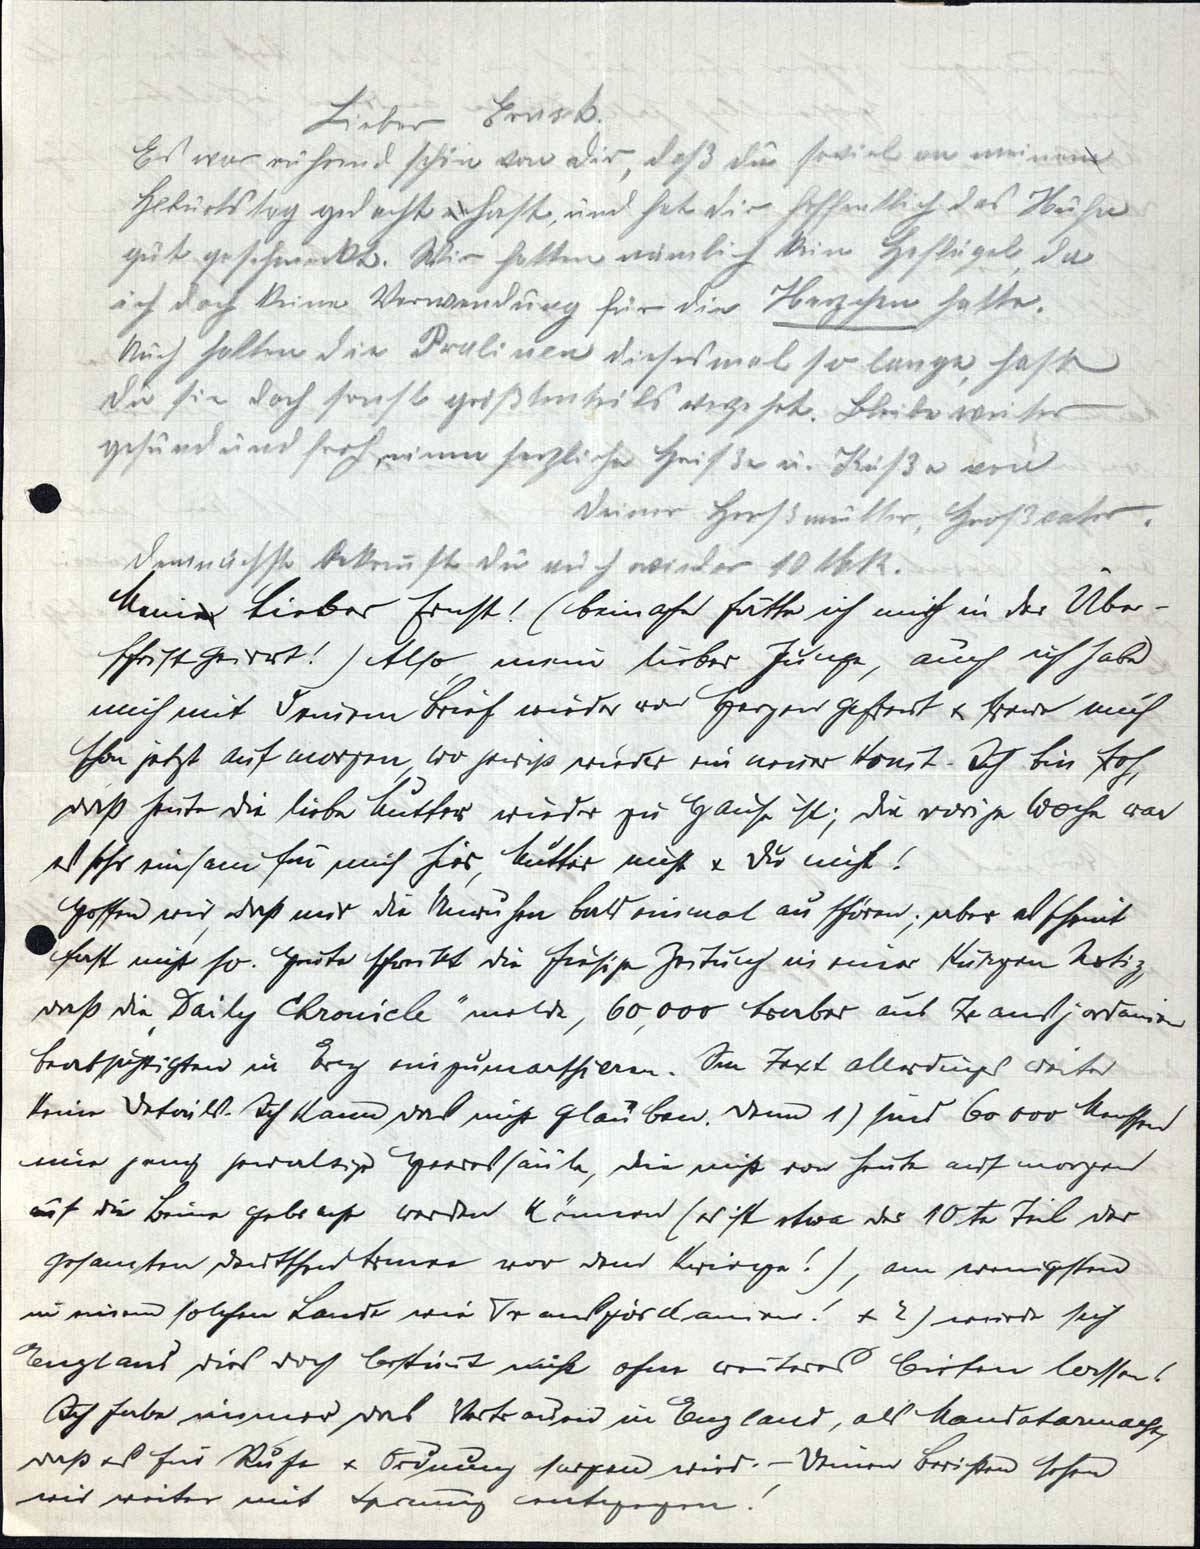 Lieber Ernst.
Es war rührend schön von dir, daß du soviel an meinen
Geburtstag gedacht hast, und hat dir hoffentlich das Huhn
gut geschmeckt. Wir hatten nämlich kein Geflügel, da
ich doch keine Verwendung für die Herzchen hatte.
Auch halten die Pralinen diesesmal so lange, hast
du sie doch sonst größtenteils verzehrt. Bleibe weiter
gesund und froh, nimm herzliche Grüße u. Küße von
deiner Großmutter, Großvater.
Demnächst bekommst du auch wieder 10 MK.
Mein lieber Ernst! (beinahe hätte ich mich in der Über-
schrift geirrt!) Also, mein lieber Junge, auch ich habe
mich mit Deinem Brief wieder von Herzen gefreut & freue mich
schon jetzt auf morgen, wo gewiß wieder ein neuer kommt. Ich bin froh,
daß heute die liebe Mutter wieder zu Hause ist; die vorige Woche war
es sehr einsam für mich hier, Mutter nicht & Du nicht!
Hoffen wir, daß nur die Unruhen bald einmal aufhören; aber es scheint
fast nicht so. Heute schreibt die hiesige Zeitung in einer kurzen Notiz,
daß die „Daily Chronicle" melde, 60,000 Araber aus Transjordanien
beabsichtigten in Erez einzumarschieren. Im Text allerdings weiter
keine Details. Ich kann das nicht glauben. Denn 1) sind 60 000 Menschen
eine ganz gewaltige Heeressäule, die nicht von heute auf morgen
auf die Beine gebracht werden können (es ist etwa der 10te Teil der
gesamten deutschen Armee vor dem Kriege!), am wenigsten
in einem solchen Lande wie Transjordanien! & 2) würde sich
England dies doch bestimmt nicht ohne weiteres bieten lassen!
Ich habe immer das Vertrauen in England, als Mandatarmacht,
daß es für Ruhe & Ordnung sorgen wird. – Deinen Berichten sehen
wir weiter mit Spannung entgegen!